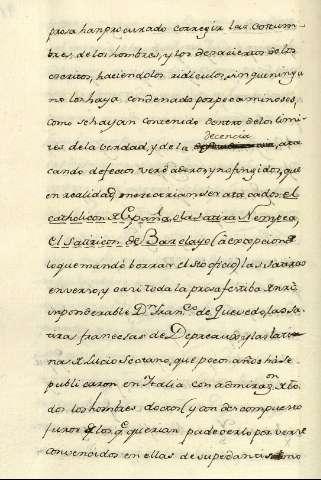 prosa han procurado corregir las costum-
bres de los hombres, y los desaciertos de los
escritos, haciendolos ridiculos, sin que ningu
no los haya condenado por pecaminosos,
como se hayan contenido dentro de los limi-
tes de la verdad, y de la
decencia
ata
cando defectos verdaderos, y no fingidos, que
en realidad merecerian ser atacados: el
catholicon de España, la satira Nemesea,
el Satiricon de Barclayo (a excepcion de
lo que mandó borrar el Sto oficio) las satiras
en verso, y casi toda la prosa festiba de nro
inponderable Dn Franco de Quevedo, las sa-
tiras francesas de Depreaux, y las latin
nas de Lucio Sectano, que pocos años há se
publicaron en Italia con admiraon de to-
dos los hombres doctos (y con descompuesto
furor de los qe querian padecerlo por verse
convencidos en ellas de su pedantismo